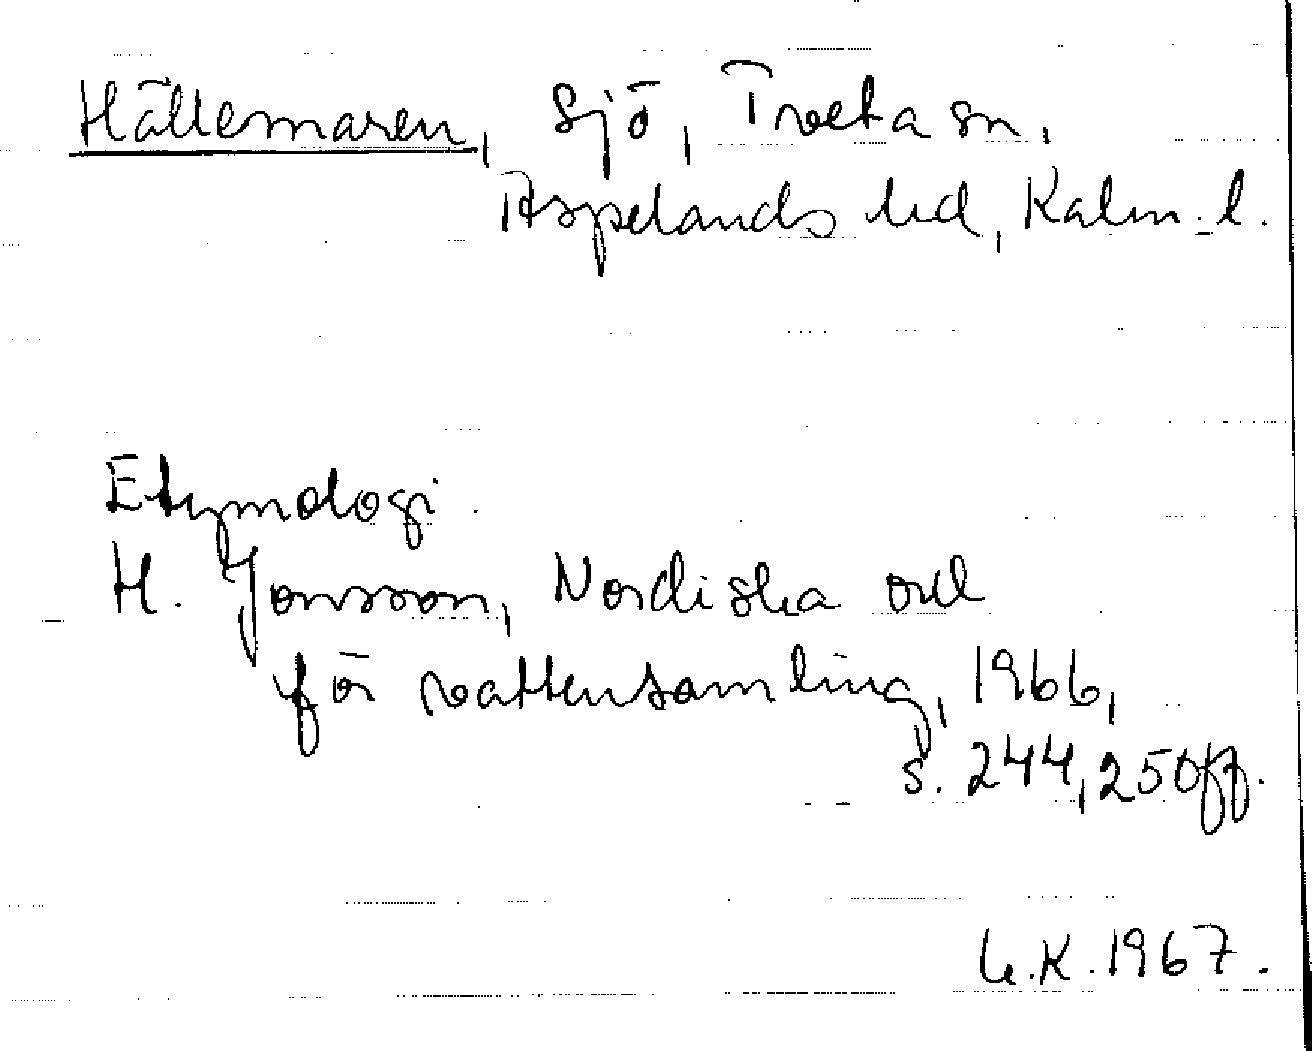 Hällemaren, Sjö, Tveta sn,
Aspelands hd, Kalm. l.
Etymologi
H. Jonsson, Nordiska ord
för vattensamling, 1966,
s. 244, 250ff.
K. 1967.